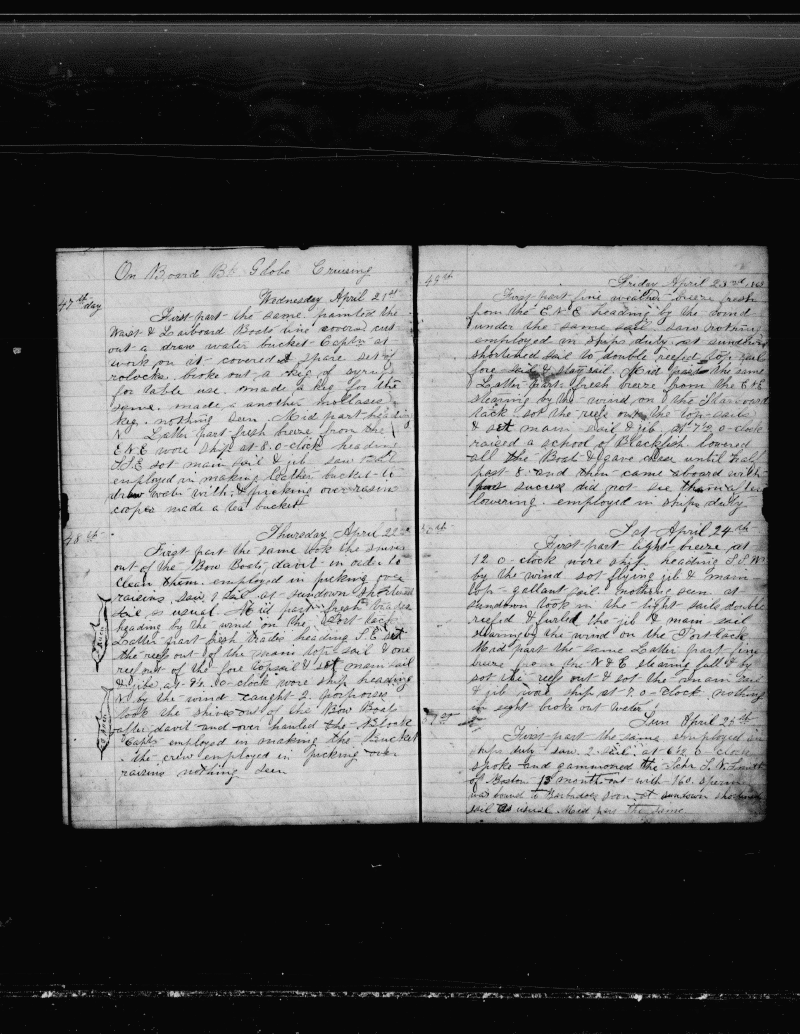 On Board Bk Globe Cruising
47th day
Wednesday April 21st
First part the same painted the
Waist & Larboard Boats line covered cut
out a draw water bucket Captn at
work on at covered spare set of
rolocks broke out a keg of syrup
for table use made a keg for the
same made a another mollases
keg nothing seen Mid part heading
N Latter part fresh breeze from the
E.N.E wore ship at 8. o-clock heading
S.E sot main sail & jib saw
employed in making leather bucket to
draw water with & picking over raisin
cooper made a bucket
48th
Thursday April 22
First part the same took the
out of the Bow Boats davit in order to
clean them. employed in picking over
raisins, saw 1 sail at sundown shortened
sail as usual. Mid part fresh trades
heading by the wind on the Port tack
Latter part fresh trades heading S.E set
the reef out of the main topsail & one
reef out of the fore topsail & set main sail
& jib at o-clock wore ship heading
N by the wind caught 2 porpoises
took the shives out of the Bow Boats
after davit and over hauled the Blocks
Captn employed in making the bucket
the crew employed in picking over
raisins nothing seen
49th
Friday April 23rd
First part fine weather breeze fresh
from the E.N.E heading by the wind
under the same sail saw nothing
employed in ships duty at sundown
shortened sail to double reefed top sails
fore sail & stay sail. Mid part the same
Latter part fresh breeze from the
stearing by the wind on the Starboard
tack sot the reefs out the top sails
& set main sail & jib. at 7½ o-clock
raised a school of Blackfish lowered
all the Boats & gave chase until half
past 8 and then came aboard with
poor sucsess did not see them after
lowering. employed in ships duty
Sat April 24th
First part light breeze at
12 o-clock wore ship heading S.S.W
by the wind sot flying jib & main
top-gallant sail. nothing seen. at
sundown took in the light sails double
reefed & furled the jib & main sail
stearing by the wind on the Port tack
Mid part the same Latter part fine
breeze from the N & E stearing full & by
sot the reef out & sot the main sail
& jib wore ship at o-clock nothing
in sight broke out water
Sun April 25th
First part the same employed in
ships duty saw 2 sail at 6½ o-clock
spoke and gammoned the Schr
of Boston 13 months out with 160. sperm
was bound to Barbadoes soon at sundown shortened
sail as usual Mid part the same